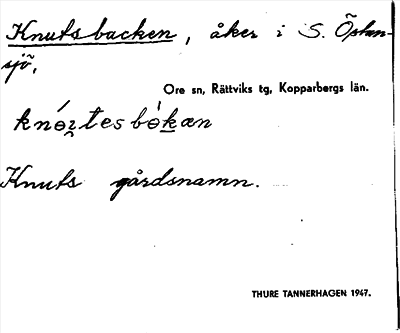 Knutsbacken, åker i S. Östan-
sjö,
Ore sn, Rättviks tg, Kopparbergs län.
Knuts gårdsnamn.
THURE TANNERHAGEN 1947.